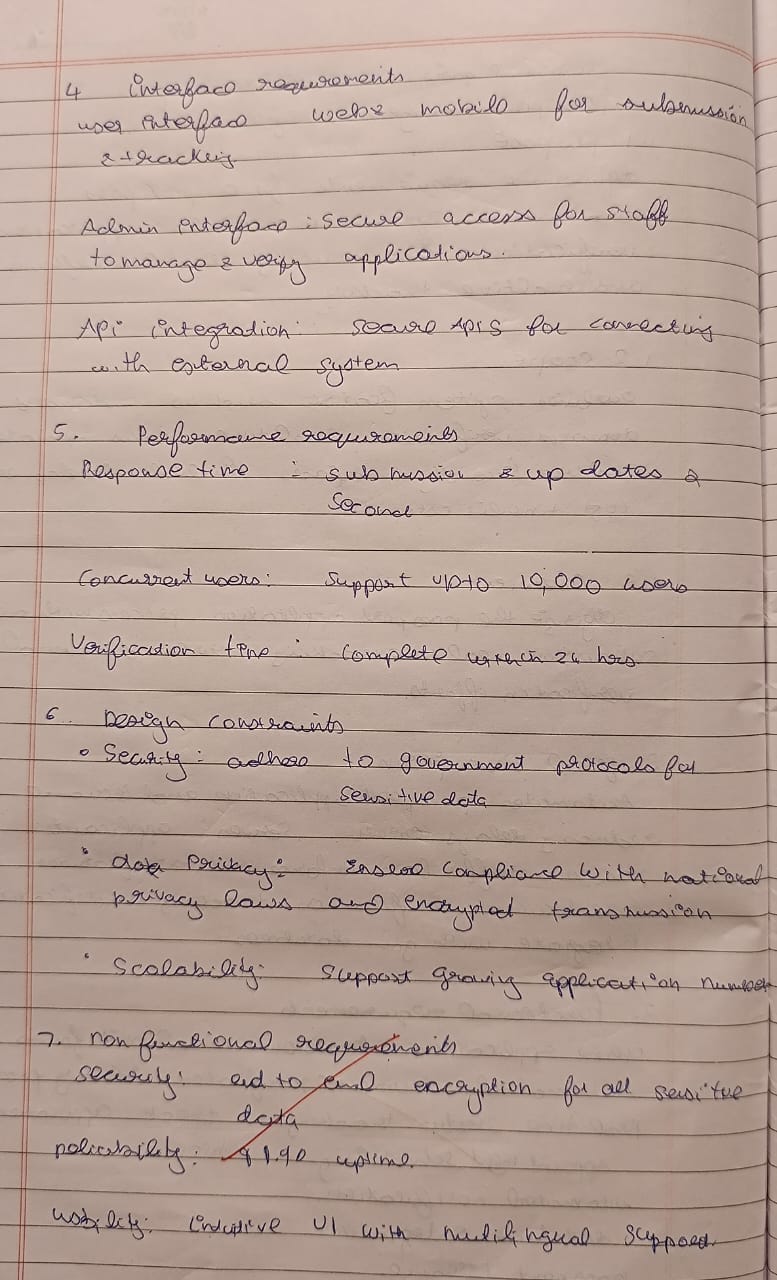 4 Interface requirements
user interface web & mobile for submission
& tracking
Admin interface : secure access for staff
to manage & verify applications.
Api integration : secure APIS for connecting
with external system
5. Performance requirements
Response time : submission & up dates 2
second
Concurrent users : Support upto 10,000 users
Verification time : complete within 24 hrs.
6. Design constraints
Security : adhere to government protocols for
sensitive data
data privacy : Ensure compliance with national
privacy laws and encrypted transmission
Scalability : support growing application number
7. non functional requirements
security : end to end encryption for all sensitve
data
uptime.
usbility : intuitive UI with multilingual support